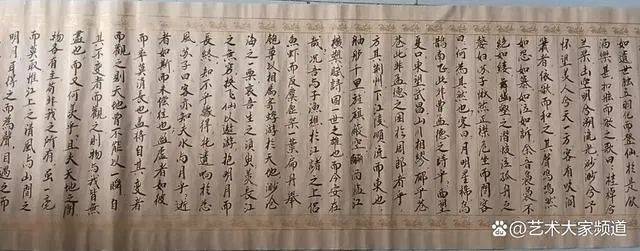 如遺世獨立羽化而登仙於是飲
酒樂甚扣舷而歌之歌曰桂棹兮
蘭槳擊空明兮溯流光渺渺兮予
懷望美人兮天一方客有吹洞
簫者依歌而和之其聲嗚嗚然
如怨如慕如泣如訴余音裊裊不
絕如縷舞幽壑之潛蛟泣孤舟之
嫠婦蘇子愀然正襟危坐而問客
曰何為其然也客曰月明星稀烏
鵲南飛此非曹孟德之詩乎西望
夏口東望武昌山川相繆郁乎蒼
蒼此非孟德之困於周郎者乎
方其荊州下江陵順流而東也
舳艫千里旌旗蔽空釃酒臨江
橫槊賦詩固一世之雄也而今安在
哉況吾與子漁樵於江渚之上侶
魚蝦而友麋鹿駕一葉扁舟舉
匏尊以相屬寄蜉蝣於天地渺滄
海之一粟哀吾生之須臾羨長江
之無窮挾飛仙以遨遊抱明月而
長終知不可乎驟得托遺響於悲
風蘇子曰客亦知夫水與月乎逝
者如斯而未嘗往也盈虛者如彼
而卒莫消長也蓋將自其變者
而觀之則天地曾不能以一瞬自
其不變者而觀之則物與我皆無
盡也而又何羨乎且夫天地之間
物各有主苟非我之所有雖一毫
而莫取惟江上之清風與山間之
明月耳得之而為聲目遇之而
@艺术大家频道